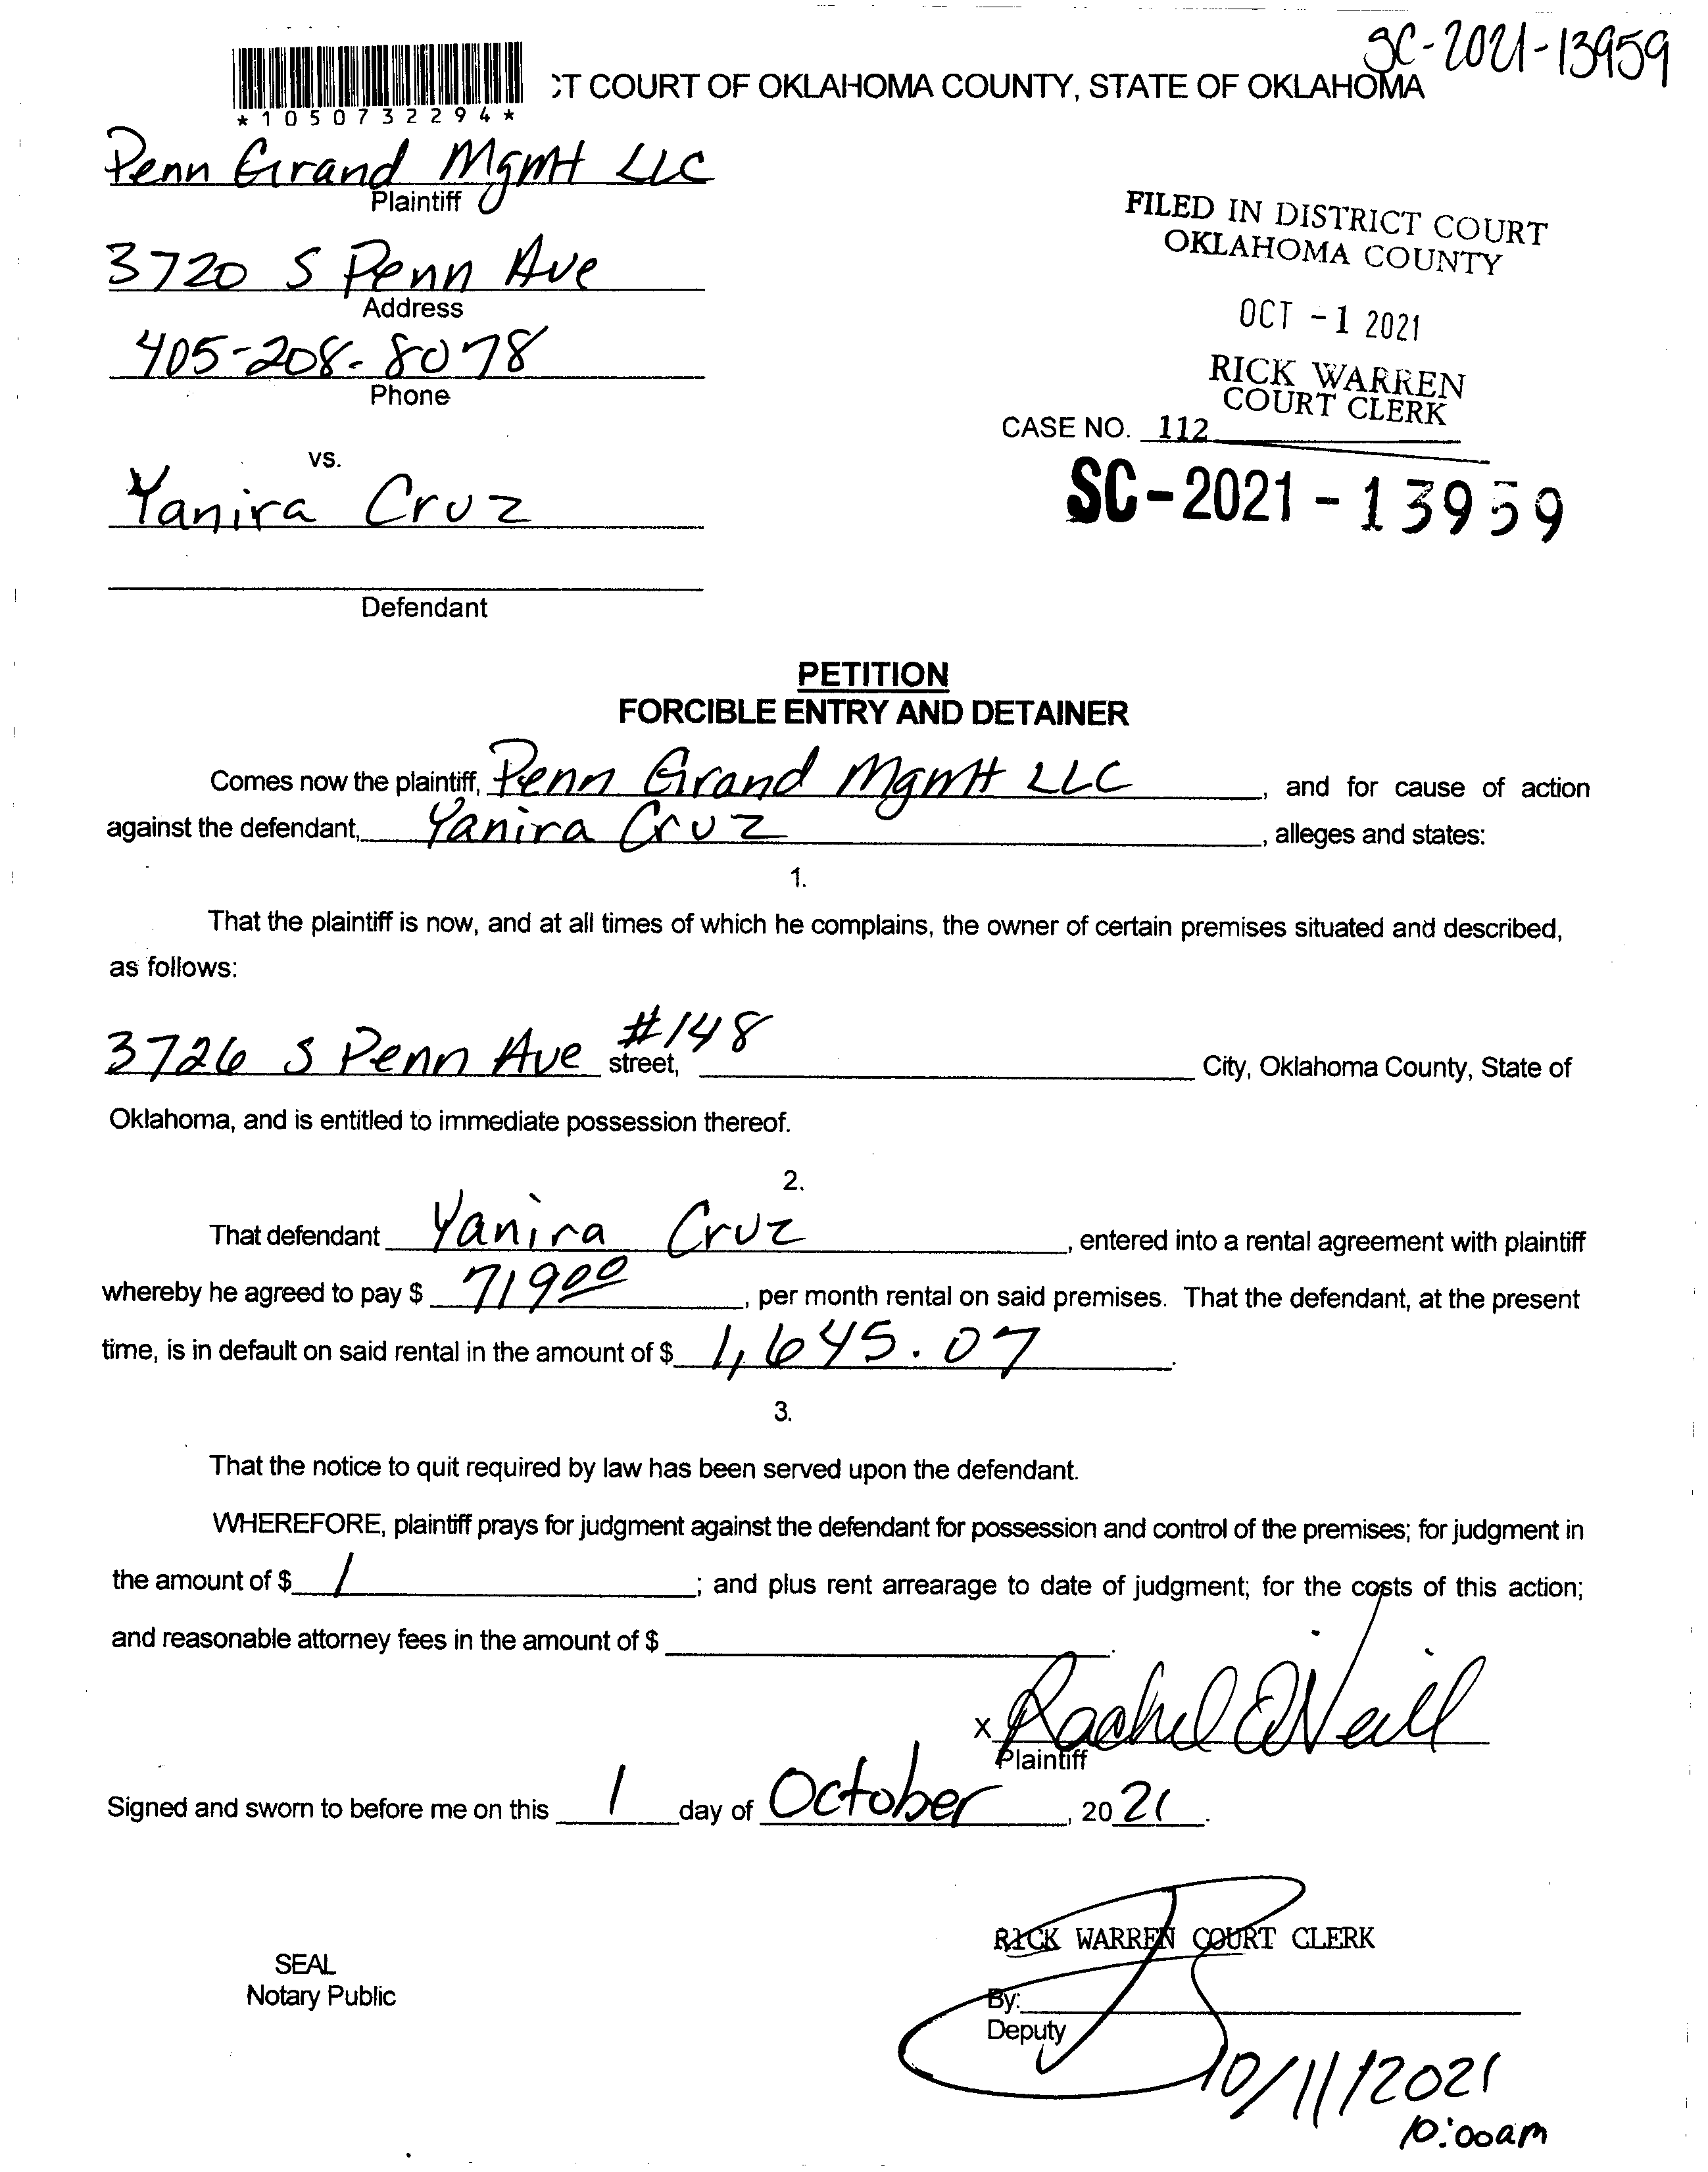 SC-2021-13959
CT COURT OF OKLAHOMA COUNTY, STATE OF OKLAHOMA
*1050732294*
Penn Grand Mgmt LLC
Plaintiff
3720 S Penn Ave
Address
405-208-8078
Phone
FILED IN DISTRICT COURT
OKLAHOMA COUNTY
OCT -1 2021
RICK WARREN
COURT CLERK
CASE NO. 112
SC-2021-13959
vs.
Yanira Cruz
Defendant
PETITION
FORCIBLE ENTRY AND DETAINER
Comes now the plaintiff, Penn Grand Mgmt LLC, and for cause of action
against the defendant, Yanira Cruz, alleges and states:
1.
That the plaintiff is now, and at all times of which he complains, the owner of certain premises situated and described,
as follows:
3726 S Penn Ave #148 street, City, Oklahoma County, State of
Oklahoma, and is entitled to immediate possession thereof.
2.
That defendant Yanira Cruz, entered into a rental agreement with plaintiff
whereby he agreed to pay $ 719 00, per month rental on said premises. That the defendant, at the present
time, is in default on said rental in the amount of $ 1,645.07.
3.
That the notice to quit required by law has been served upon the defendant.
WHEREFORE, plaintiff prays for judgment against the defendant for possession and control of the premises; for judgment in
the amount of $ / ; and plus rent arrearage to date of judgment; for the costs of this action;
and reasonable attorney fees in the amount of $ .
x Rachel O'Neill
Plaintiff
Signed and sworn to before me on this 1 day of October, 2021.
RICK WARREN COURT CLERK
SEAL
Notary Public
By:
Deputy
10/11/2021
10:00am